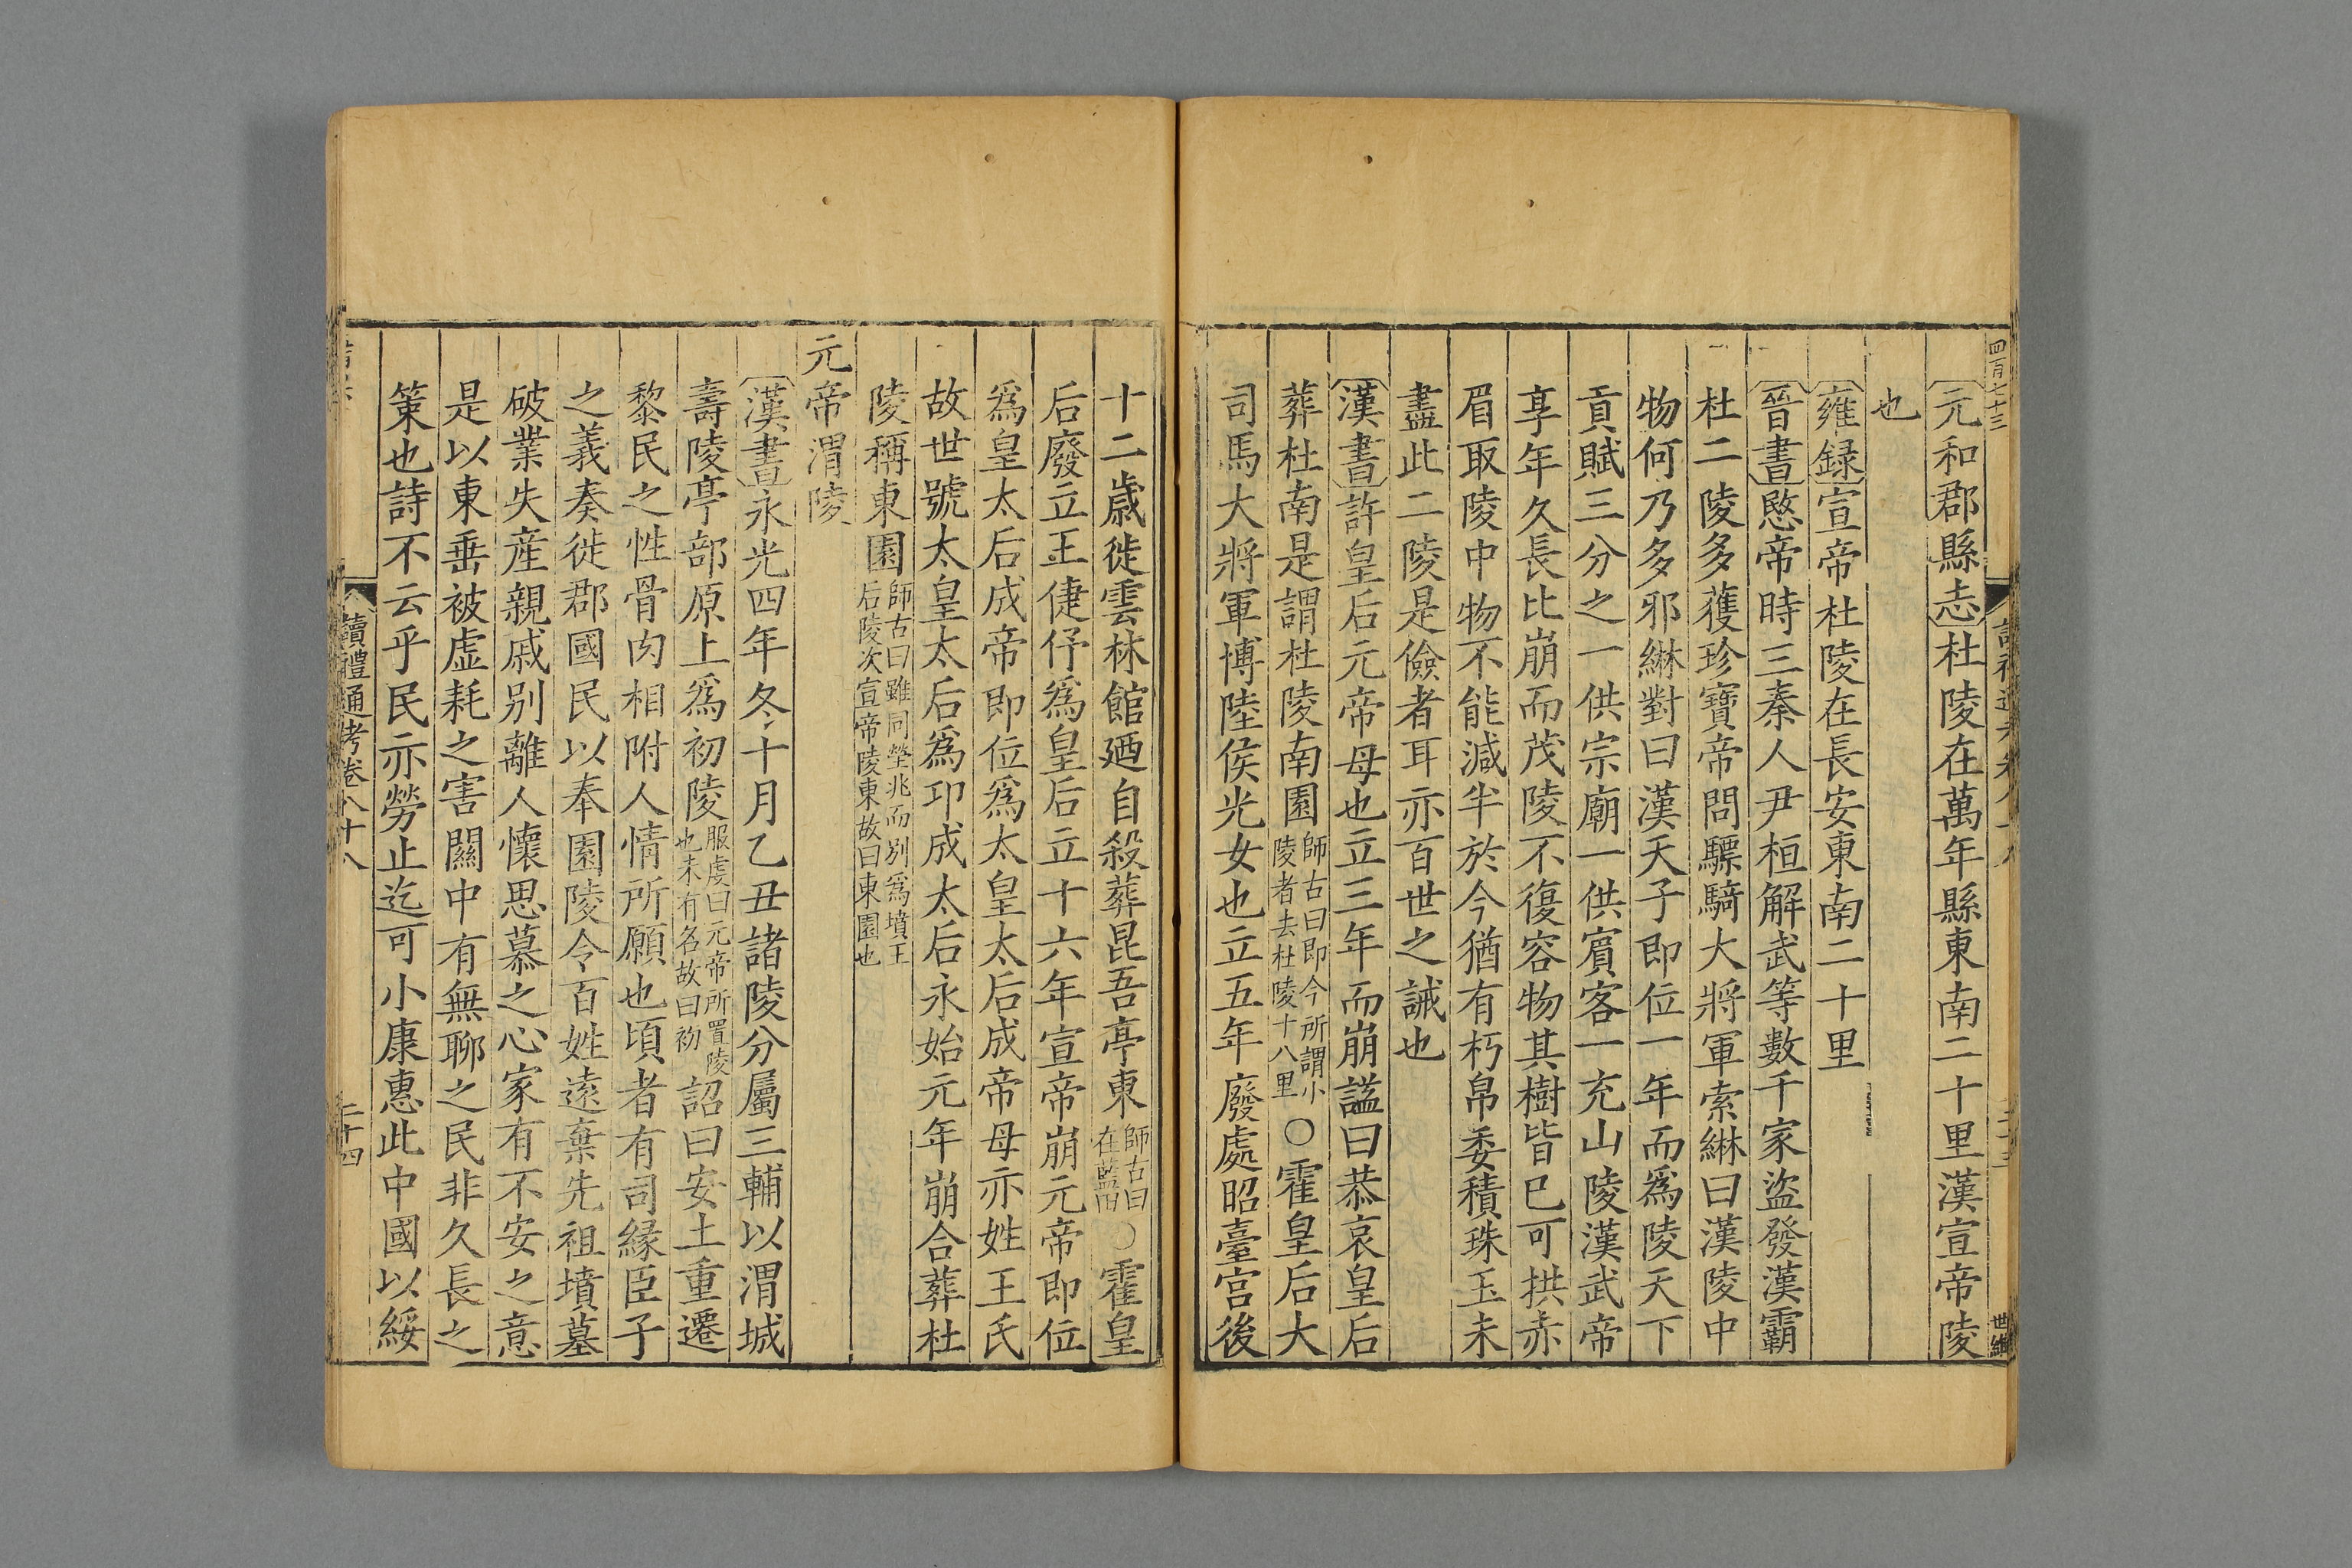 四百七十三
世綱
元和郡縣志杜陵在萬年縣東南二十里漢宣帝陵
也
雍録宣帝杜陵在長安東南二十里
晉書愍帝時三秦人尹桓解武等數千家盜發漢霸
杜二陵多獲珍寶帝問驃騎大將軍索綝曰漢陵中
物何乃多邪綝對曰漢天子即位一年而爲陵天下
貢賦三分之一供宗廟一供賓客一充山陵漢武帝
享年久長比崩而茂陵不復容物其樹皆已可拱赤
眉取陵中物不能減半於今猶有朽帛委積珠玉未
盡此二陵是儉者耳亦百世之誡也
漢書許皇后元帝母也立三年而崩諡曰恭哀皇后
葬杜南是謂杜陵南園師古曰即今所謂小陵者去杜陵十八里○霍皇后大
司馬大將軍博陸侯光女也立五年廢處昭臺宫後
十二歲徙雲林館廼自殺葬昆吾亭東師古曰在藍田○霍皇
后廢立王倢伃爲皇后立十六年宣帝崩元帝即位
爲皇太后成帝即位爲太皇太后成帝母亦姓王氏
故世號太皇太后爲卭成太后永始元年崩合葬杜
陵稱東園師古曰雖同塋兆而别爲墳王后陵次宣帝陵東故曰東園也
元帝渭陵
漢書永光四年冬十月乙丑諸陵分屬三輔以渭城
壽陵亭部原上爲初陵服虔曰元帝所置陵也未有名故曰初詔曰安土重遷
黎民之性骨肉相附人情所願也頃者有司緣臣子
之義奏徙郡國民以奉園陵令百姓遠棄先祖墳墓
破業失産親戚别離人懷思慕之心家有不安之意
是以東垂被虛耗之害關中有無聊之民非久長之
策也詩不云乎民亦勞止迄可小康惠此中國以綏
讀禮通考卷八十八
二十四